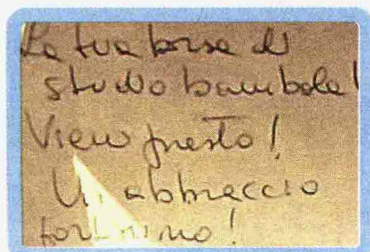 La tua borsa di
studio bambola!
Vieni presto!
Un abbraccio
fortissimo!